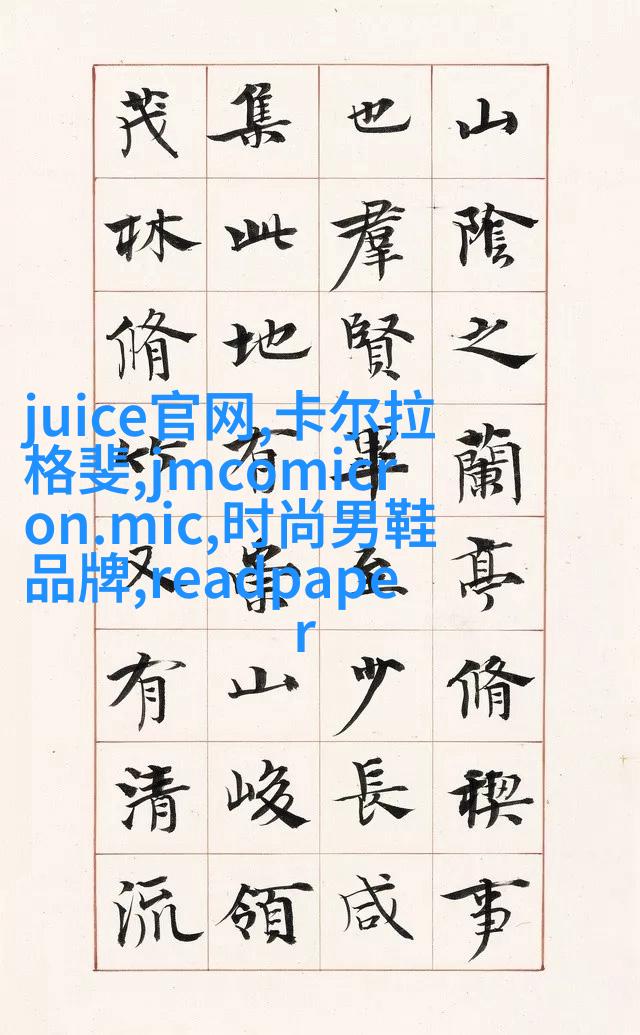 山陰之蘭亭脩稧事
也羣賢畢至少長咸
集此地有山峻領
茂林脩竹又有清流
juice官网,卡尔拉
格斐,jmcomicr
on.mic,时尚男鞋
品牌,readpape
r